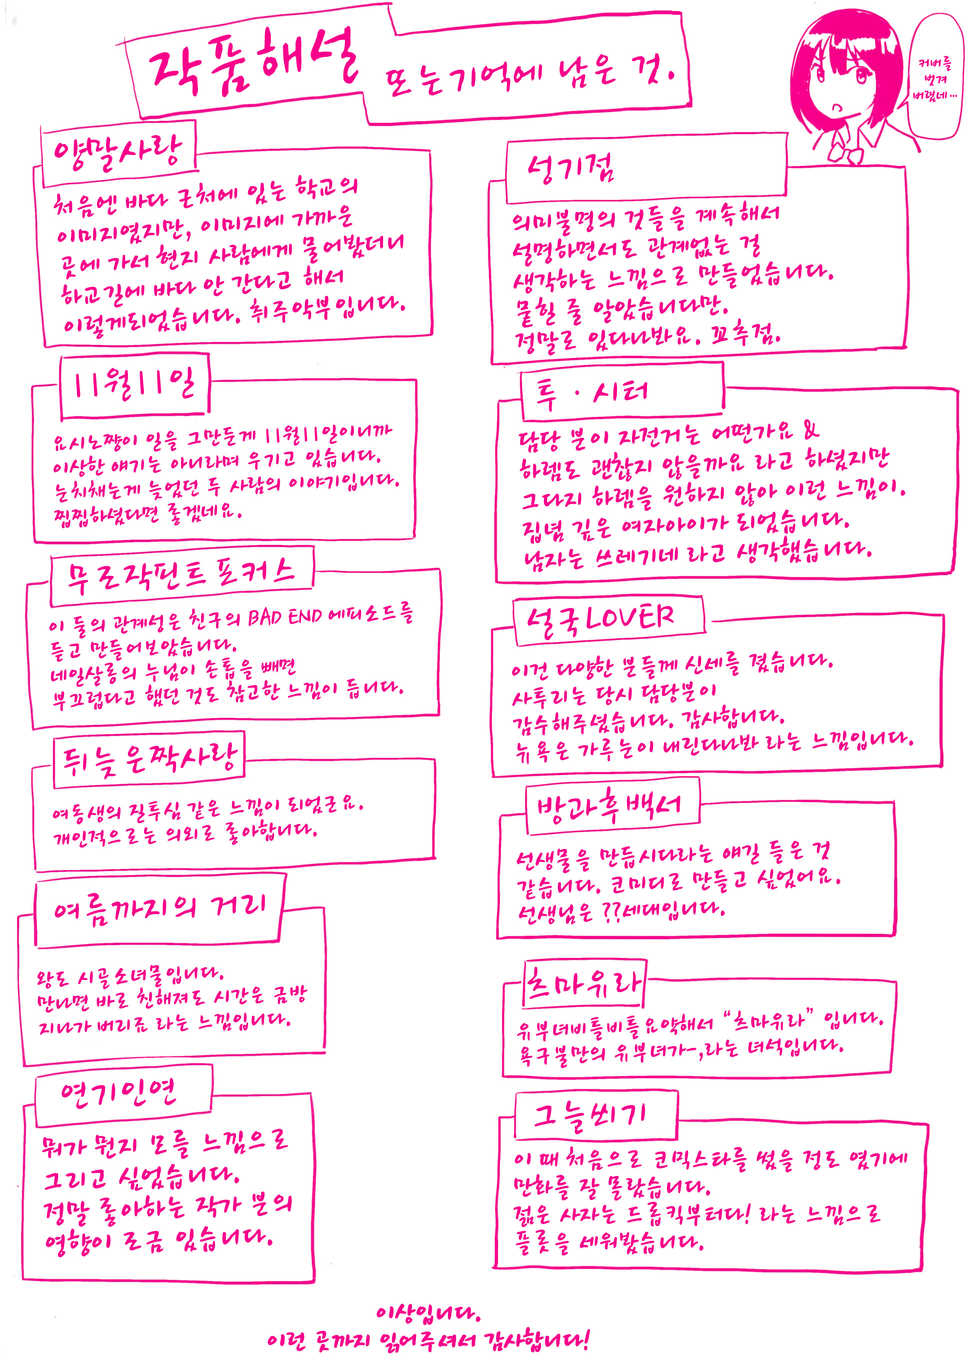 작품해설
또는 기억에 남은 것.
커버를
벗겨
버렸네…
양말사랑
처음엔 바다 근처에 있는 학교의
이미지였지만, 이미지에 가까운
곳에 가서 현지 사람에게 물어봤더니
하교길에 바다 안 간다고 해서
이렇게되었습니다. 취주악부입니다.
11월11일
요시노쨩이 일을 그만둔게 11월11일이니까
이상한 얘기는 아니라며 우기고 있습니다.
눈치채는게 늦었던 두 사람의 이야기입니다.
찝찝하셨다면 좋겠네요.
무로작핀트포커스
이 둘의 관계성은 친구의 BAD END 에피소드를
듣고 만들어보았습니다.
네일살롱의 누님이 손톱을 빼면
부끄럽다고 했던 것도 참고한 느낌이 듭니다.
뒤늦은짝사랑
여동생의 질투심 같은 느낌이 되었군요.
개인적으로는 의외로 좋아합니다.
여름까지의 거리
왕도 시골소녀물입니다.
만나면 바로 친해져도 시간은 금방
지나가 버리죠 라는 느낌입니다.
연기인연
뭐가 뭔지 모를 느낌으로
그리고 싶었습니다.
정말 좋아하는 작가 분의
영향이 조금 있습니다.
성기점
의미불명의 것들을 계속해서
설명하면서도 관계없는 걸
생각하는 느낌으로 만들었습니다.
묻힐 줄 알았습니다만.
정말로 있다나봐요. 꼬추점.
투·시터
담당 분이 자전거는 어떤가요 &
하렘도 괜찮지 않을까요 라고 하셨지만
그다지 하렘을 원하지 않아 이런 느낌이.
집념 깊은 여자아이가 되었습니다.
남자는 쓰레기네 라고 생각했습니다.
설국LOVER
이건 다양한 분들께 신세를 졌습니다.
사투리는 당시 담당분이
감수해주셨습니다. 감사합니다.
뉴욕은 가루눈이 내린다나봐 라는 느낌입니다.
방과후백서
선생물을 만듭시다라는 얘길 들은 것
같습니다. 코미디로 만들고 싶었어요.
선생님은 ??세대입니다.
츠마유라
유부녀비틀비틀요약해서 "츠마유라" 입니다.
욕구불만의 유부녀가-,라는 녀석입니다.
그늘씌기
이 때 처음으로 코믹스타를 썼을 정도 였기에
만화를 잘 몰랐습니다.
젊은 사자는 드롭킥부터다! 라는 느낌으로
플롯을 세워봤습니다.
이상입니다.
이런 곳까지 읽어주셔서 감사합니다!